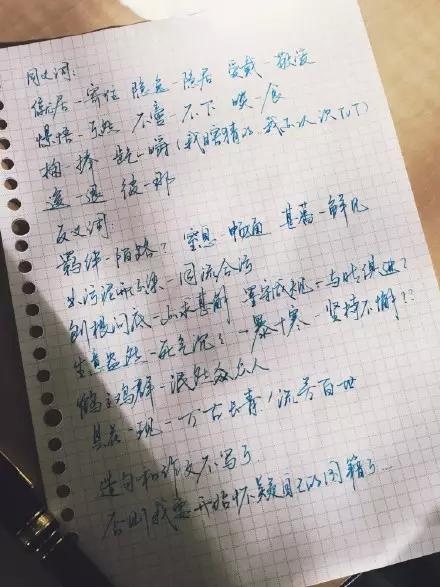 同义词:
僦居-寄住 隐逸-隐居 爱戴-敬爱
憬悟- 不啻-不下 啖-食
掬-捧 龁-嚼(我瞎猜的,我不认识TVT)
遑-暇 彼-那
反义词:
羁绊-陌路? 窒息-畅通 甚蕃-鲜见
出污泥而不染-同流合污
刨根问底-不求甚解 墨守成规-与时俱进?
生意盎然-死气沉沉 一暴十寒-坚持不懈??
鹤立鸡群-泯然众人
昙花一现-万古长青/流芳百世
造句和作文不写了
否则我要开始怀疑自己的国籍了...